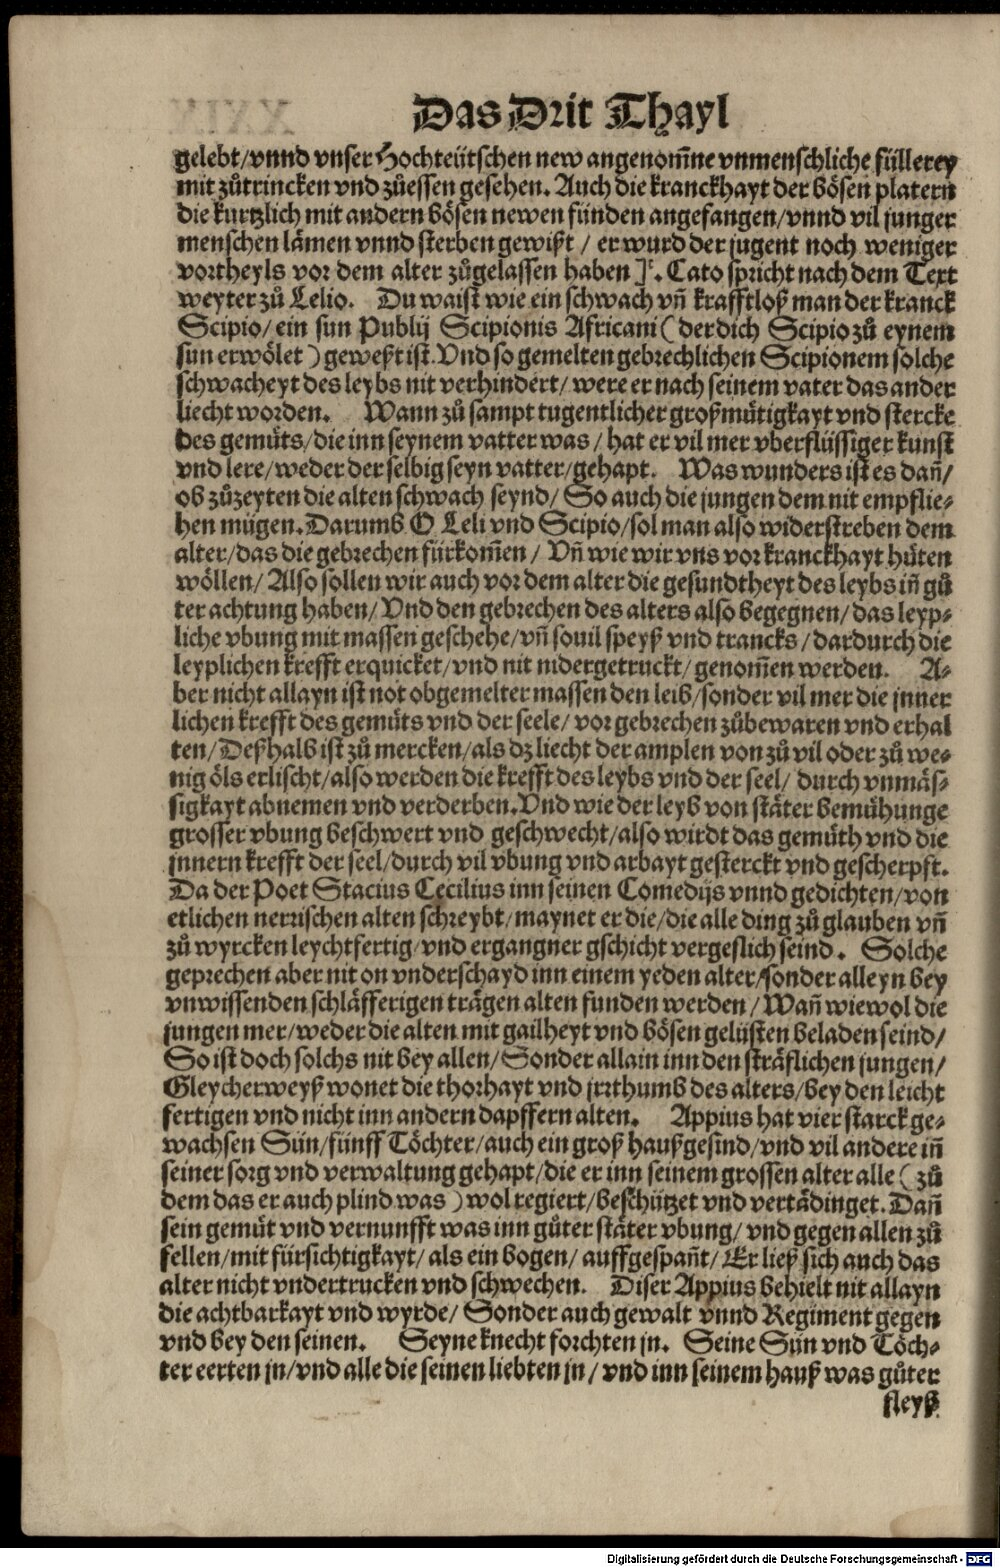 Das Drit Thayl
gelebt/vnnd vnser Hochteütschen new angenom̃ne vnmenschliche füllerey
mit zůtrincken vnd zůessen gesehen. Auch die kranckhayt der bösen platern
die kurtzlich mit andern bösen newen fünden angefangen/vnnd vil junger
menschen lämen vnnd sterben gewißt / er wurd der jugent noch weniger
vortheyls vor dem alter zůgelassen haben ]ᶜ. Cato spricht nach dem Text
weyter zů Lelio. Du waist wie ein schwach vñ krafftloß man der kranck
Scipio/ein sun Publij Scipionis Africani ( der dich Scipio zů eynem
sun erwölet ) geweßt ist. Vnd so gemelten gebrechlichen Scipionem solche
schwacheyt des leybs nit verhindert/ were er nach seinem vater das ander
liecht worden. Wann zů sampt tugentlicher großmütigkayt vnd stercke
des gemüts/die inn seynem vatter was / hat er vil mer vberflüssiger kunst
vnd lere/weder der selbig seyn vatter/gehapt. Was wunders ist es dañ/
ob zůzeyten die alten schwach seynd/ So auch die jungen dem nit empflie-
hen mügen. Darumb O Leli vnd Scipio/sol man also widerstreben dem
alter/das die gebrechen fürkom̃en / Vñ wie wir vns vor kranckhayt hüten
wöllen/ Also sollen wir auch vor dem alter die gesundtheyt des leybs iñ gů
ter achtung haben/ Vnd den gebrechen des alters also begegnen/das leyp-
liche vbung mit massen geschehe/vñ souil speyß vnd trancks/dardurch die
leyplichen krefft erquicket/vnd nit nidergetruckt/genom̃en werden. A-
ber nicht allayn ist not obgemelter massen den leib/sonder vil mer die jnner
lichen krefft des gemüts vnd der seele/ vor gebrechen zůbewaren vnd erhal
ten/ Deßhalb ist zů mercken/als dz liecht der amplen von zů vil oder zů we-
nig öls erlischt/also werden die krefft des leybs vnd der seel/ durch vnmäs-
sigkayt abnemen vnd verderben. Vnd wie der leyb von stäter bemühunge
grosser vbung beschwert vnd geschwecht/also wirdt das gemüth vnd die
jnnern krefft der seel/durch vil vbung vnd arbayt gesterckt vnd gescherpft.
Da der Poet Stacius Cecilius inn seinen Comedijs vnnd gedichten/von
etlichen nerrischen alten schreybt/maynet er die/die alle ding zů glauben vñ
zů wyrcken leychtfertig/vnd ergangner gschicht vergeslich seind. Solche
geprechen aber nit on vnderschayd inn einem yeden alter/sonder alleyn bey
vnwissenden schläfferigen trägen alten funden werden/ Wañ wiewol die
jungen mer/weder die alten mit gailheyt vnd bösen gelüsten beladen seind/
So ist doch solchs nit bey allen/Sonder allain inn den sträflichen jungen/
Gleycherweyß wonet die thorhayt vnd jrrthumb des alters/bey den leicht
fertigen vnd nicht inn andern dapffern alten. Appius hat vier starck ge-
wachsen Sün/fünff Töchter/auch ein groß haußgesind/vnd vil andere iñ
seiner sorg vnd verwaltung gehapt/die er inn seinem grossen alter alle ( zů
dem das er auch plind was ) wol regiert/beschützet vnd vertädinget. Dañ
sein gemüt vnd vernunfft was inn gůter stäter vbung/ vnd gegen allen zů
fellen/mit fürsichtigkayt/ als ein bogen/ auffgespañt/ Er ließ sich auch das
alter nicht vndertrucken vnd schwechen. Diser Appius behielt nit allayn
die achtbarkayt vnd wyrde/ Sonder auch gewalt vnnd Regiment gegen
vnd bey den seinen. Seyne knecht forchten jn. Seine Sün vnd Töch-
ter eerten jn/vnd alle die seinen liebten jn / vnd inn seinem hauß was gůter
fleyß.
Digitalisierung gefördert durch die Deutsche Forschungsgemeinschaft - DFG